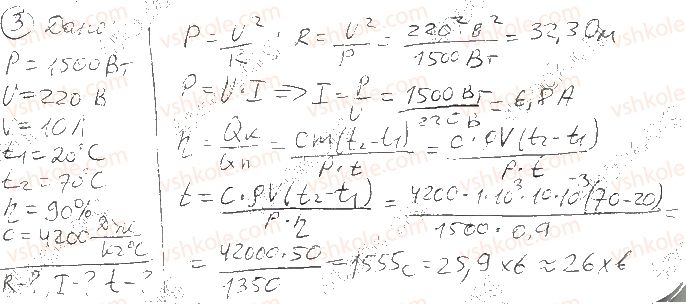 ③ Дано
P = 1500 Вт
U = 220 В
V = 10 л
t₁ = 20°C
t₂ = 70°C
η = 90%
c = 4200 Дж/кг°C
R - ?, I - ? t - ?
P = U²/R ; R = U²/P = 220² В²/1500 Вт = 32,3 Ом
P = U · I => I = P/U = 1500 Вт/220 В = 6,8 А
η = Qк/Qп = cm(t₂ - t₁)/P · t = c · ρV(t₂ - t₁)/P · t
t = c · ρV(t₂ - t₁)/P · η = 4200 · 1 · 10³ · 10 · 10⁻³(70 - 20)/1500 · 0,9 =
= 42000 · 50/1350 = 1555 с = 25,9 хв ≈ 26 хв
vshkole.com